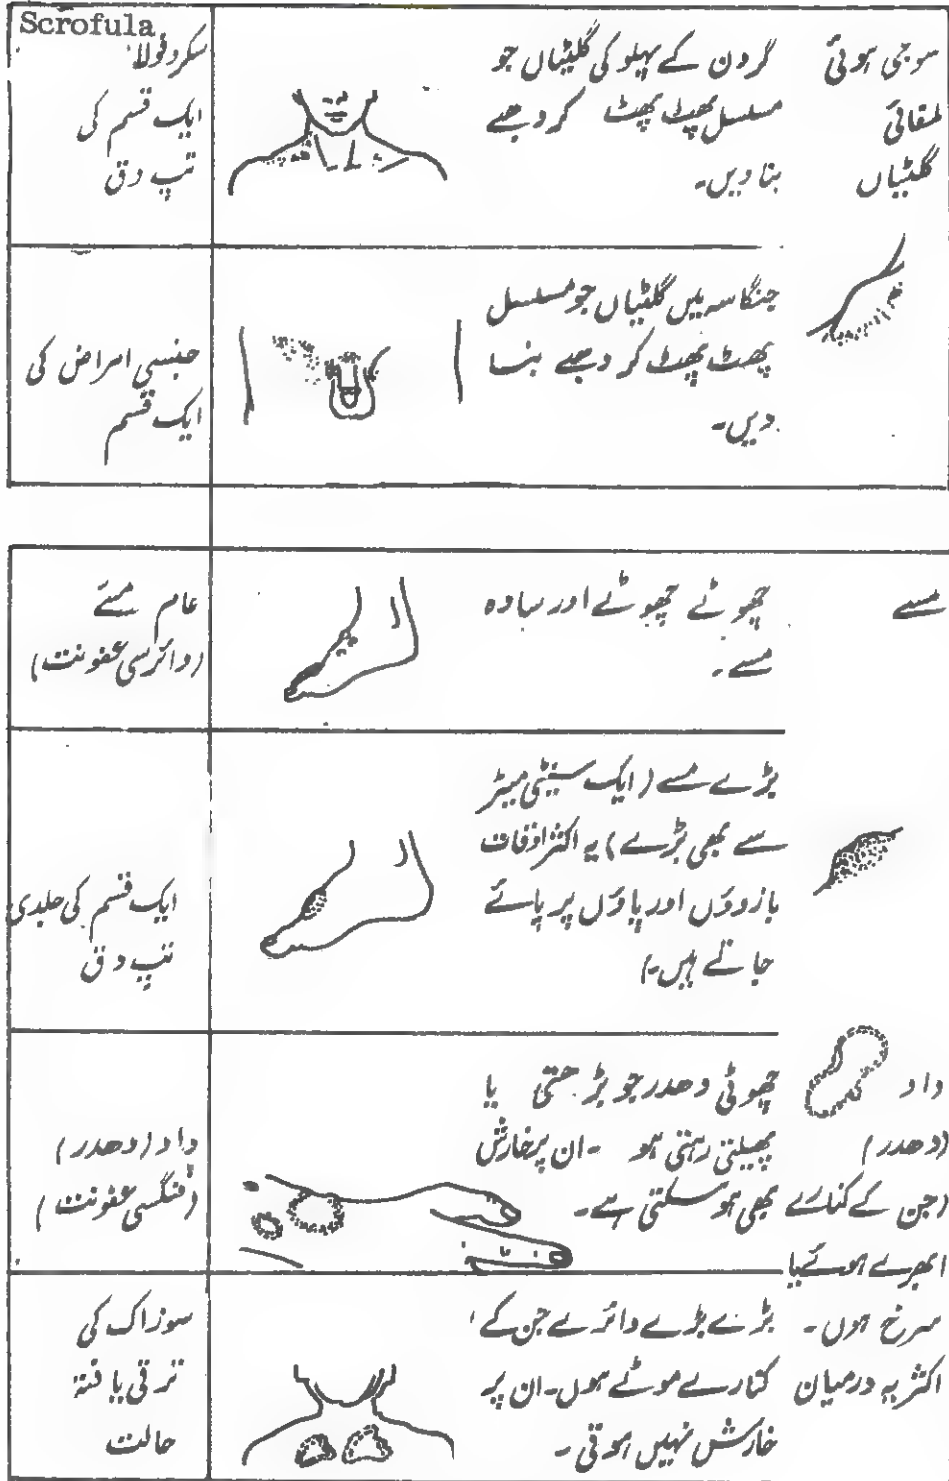 سوجی ہوئی
لمفاتی
گلٹیاں
گردن کے پہلو کی گلیٹیاں جو
مسلسل پھٹ پھٹ کر دھبے
بنا دیں۔
Scrofula
سکروفولا
ایک قسم کی
تپ دق
جنگاسہ میں گلٹیاں جو مسلسل
پھٹ پھٹ کر دھبے بنا
دیں۔
جنسی امراض کی
ایک قسم
مسے
چھوٹے چھوٹے اور سادہ
مسے۔
عام مسّے
(وائرسی عفونت)
بڑے مسے (ایک سینٹی میٹر
سے بھی بڑے) یہ اکثر اوقات
بازوؤں اور پاؤں پر پائے
جاتے ہیں۔)
ایک قسم کی جلدی
تپ دق
داد
(دھدر)
(جن کے کنارے
ابھرے ہوئے یا
سرخ ہوں۔
اکثر یہ درمیان
چھوٹی دھدر جو بڑھتی یا
پھیلتی رہتی ہو ۔ان پر خارش
بھی ہو سکتی ہے۔
داد (دھدر)
(فنگسی عفونت)
بڑے بڑے دائرے جن کے
کنارے موٹے ہوں۔ان پر
خارش نہیں ہوتی ۔
سوزاک کی
ترقی یافتہ
حالت